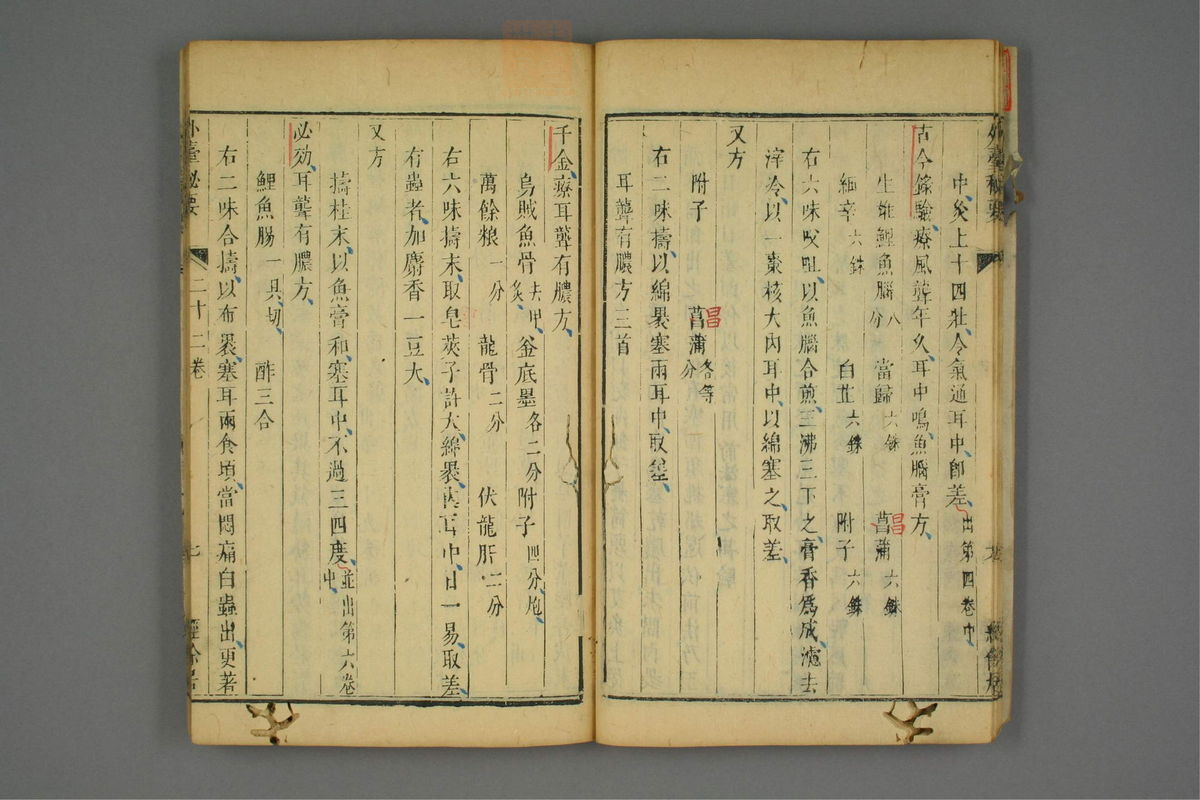 中灸上十四壯令氣通耳中即差出第四卷中
古今錄驗療風聾年久耳中鳴魚腦膏方
生雄鯉魚腦八分 當歸六銖 菖蒲六銖
細辛六銖 白芷六銖 附子六銖
右六味㕮咀以魚腦合煎三沸三下之膏香爲成濾去
滓冷以一棗核大內耳中以綿塞之取差
又方
附子 菖蒲各等分
右二味擣以綿裹塞兩耳中取差
耳聾有膿方三首
千金療耳聾有膿方
烏賊魚骨去甲炙 釜底墨各二分 附子四分炮
萬餘粮一分 龍骨二分 伏龍肝二分
右六味擣末取皂莢子許大綿裹內耳中日一易取差
有蟲者加麝香一豆大
又方
擣桂末以魚膏和塞耳中不過三四度並出第六卷中
必効耳聾有膿方
鯉魚腸一具切 酢三合
右二味合擣以布裹塞耳兩食頃當悶痛白蟲出更著
外臺秘要
二十二卷
七
經餘居
昌
昌